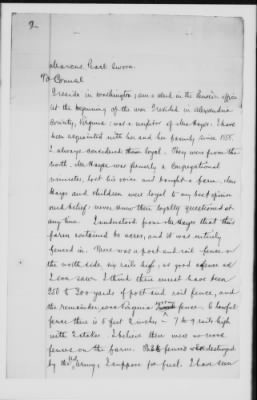 2
Marcus Hart Sworn.
To Counsel
I reside in Washington; am a clerk in the Pension office
At the beginning of the war I resided in Alexandria
County, Virginia; was a neighbor of Mr Hayes. I have
been acquainted with her and her family since 1855.
I always considered them loyal. They were from the
north. Mr Hayes was formerly a congregational
minister, lost his voice and bought a farm. Mr
Hayes and children were loyal to my best opinion
and belief; never knew their loyalty questioned at
any time. I understood from Mr Hayes that this
farm contained 62 acres, and it was entirely
fenced in. There was a post and rail fence on
the north side, six rails high, as good a fence as
I ever saw. I think there must have been
250 to 300 yards of post and rail fence, and
the remainder, was Virginia fence. A lawful
fence there is 5 feet 2 inches - 7 to 9 rails high
with 2 stakes. I believe there were no cross
fences on the farm. fence destroyed
by the Army; I suppose for fuel. I have seen